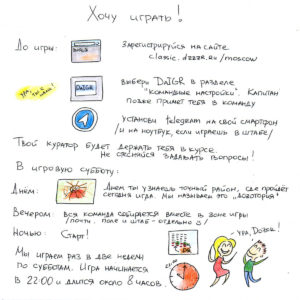 Хочу играть!
До игры:
Зарегистрируйся на сайте
classic.dzzzr.ru/moscow
Ура, ты с нами!
DaIGR
Выбери DaIGR в разделе
"командные настройки". Капитан
позже примет тебя в команду
Установи telegram на свой смартфон
/и на ноутбук, если играешь в штабе/
Твой куратор будет держать тебя в курсе.
Не стесняйся задавать вопросы!
В игровую субботу:
Днём:
Днем ты узнаешь точный район, где пройдёт
сегодня игра. Мы называем это "доезором"
Вечером:
Вся команда собирается вместе в зоне игры
/почти. поле и штаб - отдельно :)/
Ночью:
Старт!
- Ура, Dozor!
Мы играем раз в две недели
по субботам. Игра начинается
в 22:00 и длится около 8 часов.